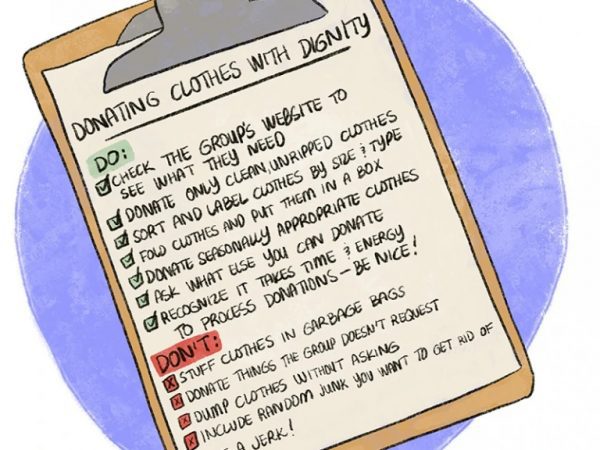 DONATING CLOTHES WITH DIGNITY
DO:
CHECK THE GROUP'S WEBSITE TO
SEE WHAT THEY NEED
DONATE ONLY CLEAN, UNRIPPED CLOTHES
SORT AND LABEL CLOTHES BY SIZE & TYPE
FOLD CLOTHES AND PUT THEM IN A BOX
DONATE SEASONALLY APPROPRIATE CLOTHES
ASK WHAT ELSE YOU CAN DONATE
RECOGNIZE IT TAKES TIME & ENERGY
TO PROCESS DONATIONS – BE NICE!
DON'T:
STUFF CLOTHES IN GARBAGE BAGS
DONATE THINGS THE GROUP DOESN'T REQUEST
DUMP CLOTHES WITHOUT ASKING
INCLUDE RANDOM JUNK YOU WANT TO GET RID OF
A JERK!